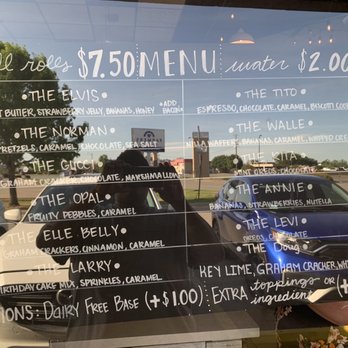 ll rolls $7.50 MENU water $2.00
• THE ELVIS •
T BUTTER, STRAWBERRY JELLY, BANANAS, HONEY + ADD BACON
• THE NORMAN •
PRETZELS, CARAMEL, CHOCOLATE, SEA SALT
• THE GUCCI •
GRAHAM CRACKER, CHOCOLATE, MARSHMALLOW
• THE OPAL •
FRUITY PEBBLES, CARAMEL
• THE ELLE BELLY •
GRAHAM CRACKERS, CINNAMON, CARAMEL
• THE LARRY •
BIRTHDAY CAKE MIX, SPRINKLES, CARAMEL
• THE TITO •
ESPRESSO, CHOCOLATE, CARAMEL, BISCOTTI COO
• THE WALLE •
NILLA WAFERS, BANANAS, CARAMEL, WHIPPED CRE
• THE KITA •
MINT OREOS, CHOCOLATE
• THE ANNIE •
BANANAS, STRAWBERRIES, NUTELLA
• THE LEVI •
OREOS, CHOCOLATE
• THE Doug •
KEY LIME, GRAHAM CRACKER, WH
IONS: DAIRY FREE BASE (+$1.00)
EXTRA toppings or ingredient (+